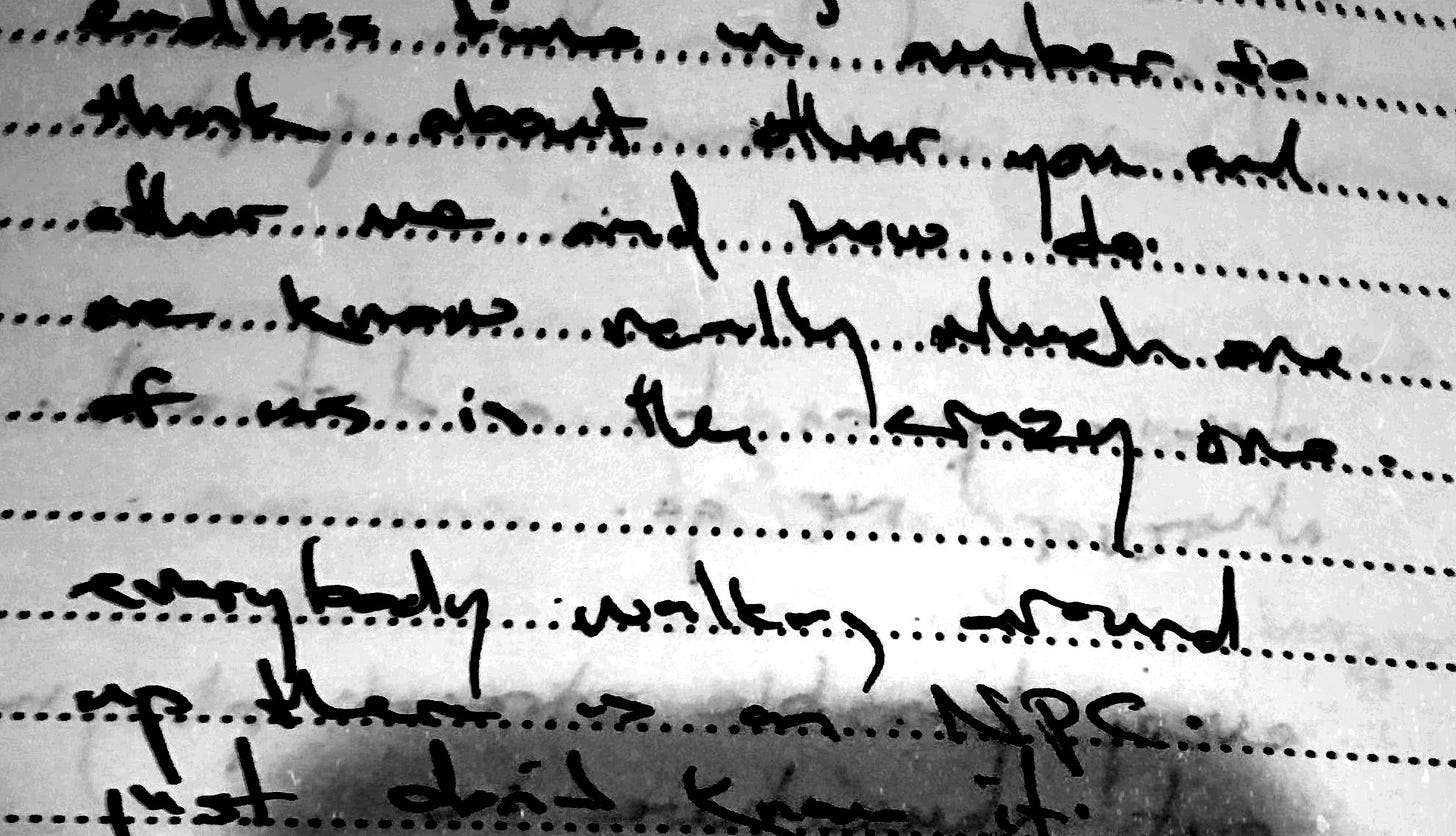 endless time in number to
think about other you and
other me and how do
we know really which one
of us is the crazy one.
everybody walking around
up there is an NPC.
just don't know it.